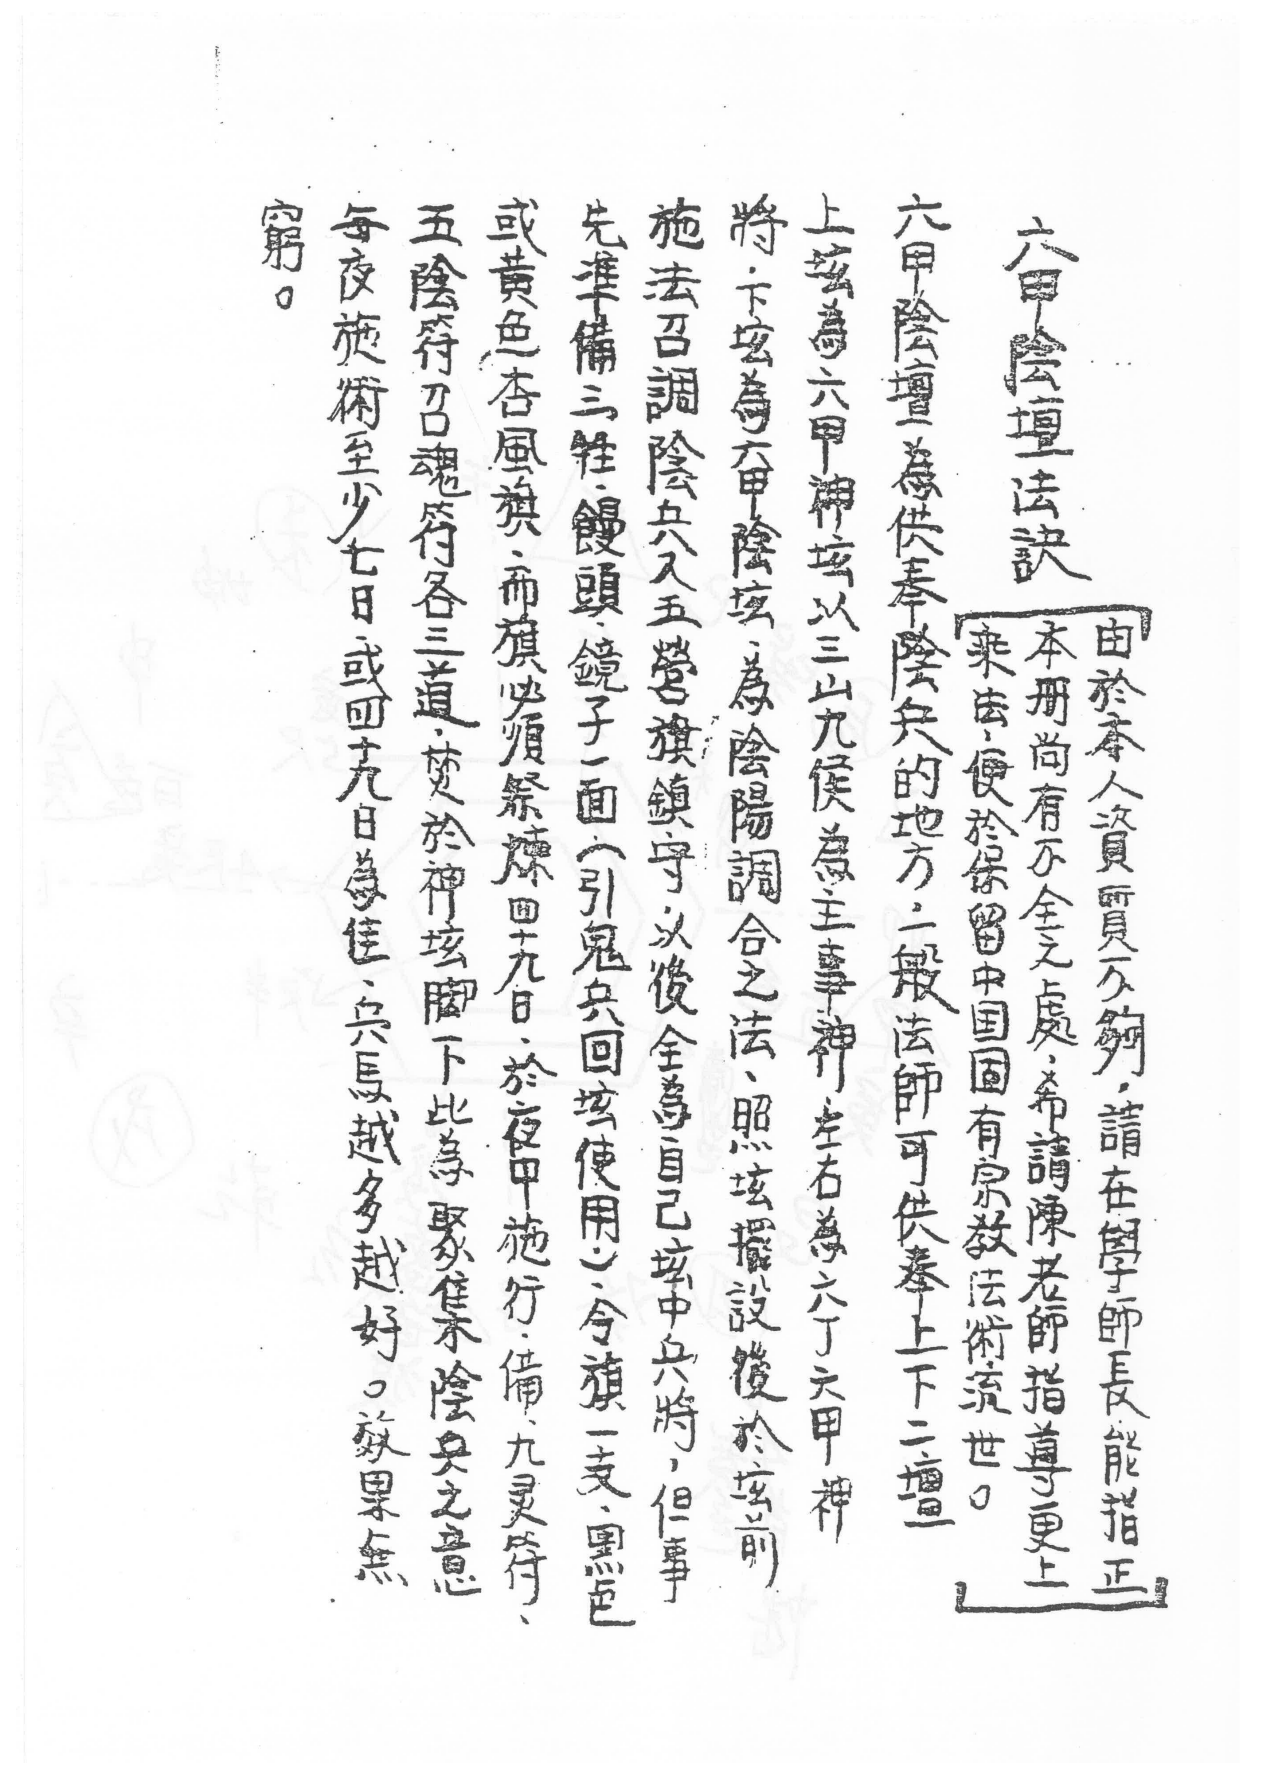 六甲陰壇法訣
由於本人資質不夠，請在學師長能指正
本册尚有不全之處，希請陳老師指導更上
乘法，便於保留中国固有宗教法術流世。
六甲陰壇為供奉陰兵的地方，一般法師可供奉上下二壇
上垓為六甲神垓以三山九侯為主事神，左右為六丁六甲神
將，下垓為六甲陰垓，為陰陽調合之法、照垓擺設後於垓前
施法召調陰兵入五營旗鎮守，以後全為自己垓中兵將，但事
先準備三牲、饅頭、鏡子一面（引鬼兵回垓使用）、令旗一支、黑色
或黃色杏風旗，而旗必須祭煉四十九日，於夜中施行，備、九灵符、
五陰符召魂符各三道，焚於神垓腳下比為聚集陰兵之意
每夜施術至少七日，或四十九日為佳，兵馬越多越好。效果無
窮。